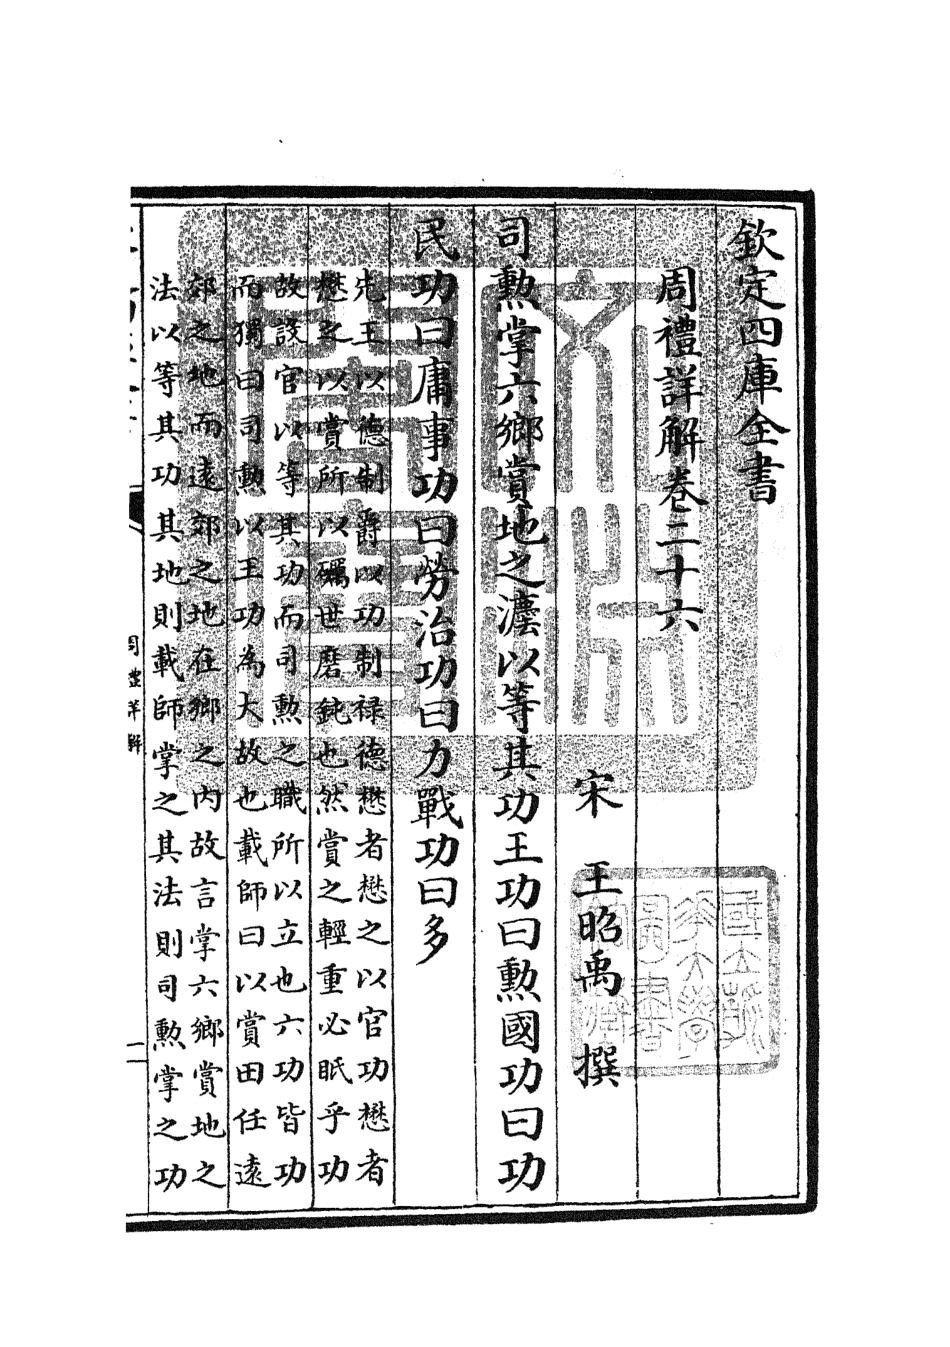 欽定四庫全書
周禮詳解卷二十六
宋 王昭禹 撰
司勲掌六鄉賞地之灋以等其功王功曰勲國功曰功
民功曰庸事功曰勞治功曰力戰功曰多
先王以德制爵以功制禄德懋者懋之以官功懋者
懋之以賞所以礪世磨鈍也然賞之輕重必眂乎功
故設官以等其功而司勲之職所以立也六功皆功
而獨曰司勲以王功為大故也載師曰以賞田任逺
郊之地而逺郊之地在鄉之内故言掌六鄉賞地之
法以等其功其地則載師掌之其法則司勲掌之功
周禮詳解